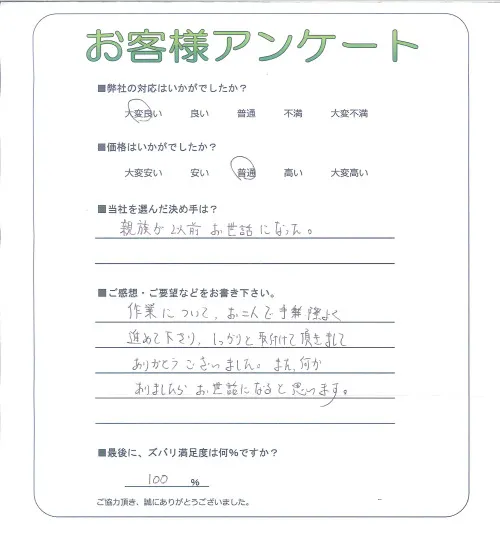 お客様アンケート
■弊社の対応はいかがでしたか？
大変良い 良い 普通 不満 大変不満
■価格はいかがでしたか？
大変安い 安い 普通 高い 大変高い
■当社を選んだ決め手は？
親族が以前お世話になった。
■ご感想・ご要望などをお書き下さい。
作業について、お二人で手際よく
進めて下さり、しっかりと取付けて頂きまして
ありがとうございました。また、何か
ありましたらお世話になると思います。
■最後に、ズバリ満足度は何%ですか？
100 %
ご協力頂き、誠にありがとうございました。